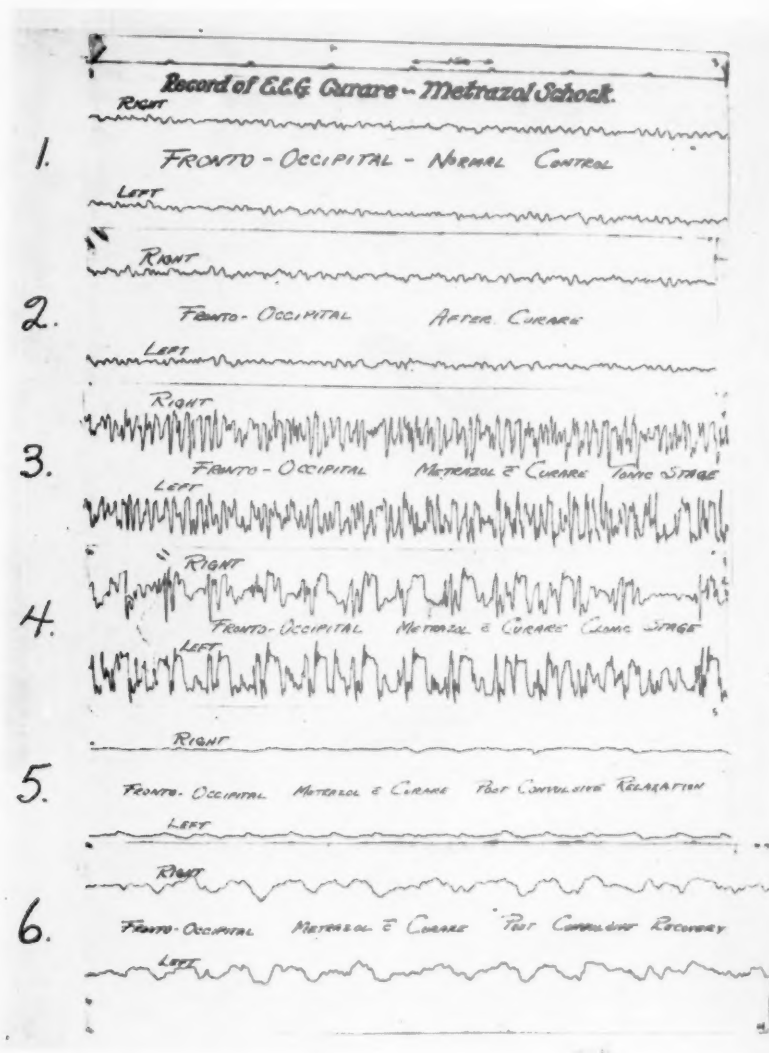 1 SEC
Record of E.E.G. Curare - Metrazol Schock.
RIGHT
1. FRONTO - OCCIPITAL - NORMAL CONTROL
LEFT
RIGHT
2. FRONTO - OCCIPITAL AFTER CURARE
LEFT
RIGHT
3. FRONTO - OCCIPITAL METRAZOL c̄ CURARE TONIC STAGE
LEFT
RIGHT
4. FRONTO-OCCIPITAL METRAZOL c̄ CURARE CLONIC STAGE
LEFT
RIGHT
5. FRONTO-OCCIPITAL METRAZOL c̄ CURARE POST CONVULSIVE RELAXATION
LEFT
RIGHT
6. FRONTO-OCCIPITAL METRAZOL c̄ CURARE POST CONVULSIVE RECOVERY
LEFT